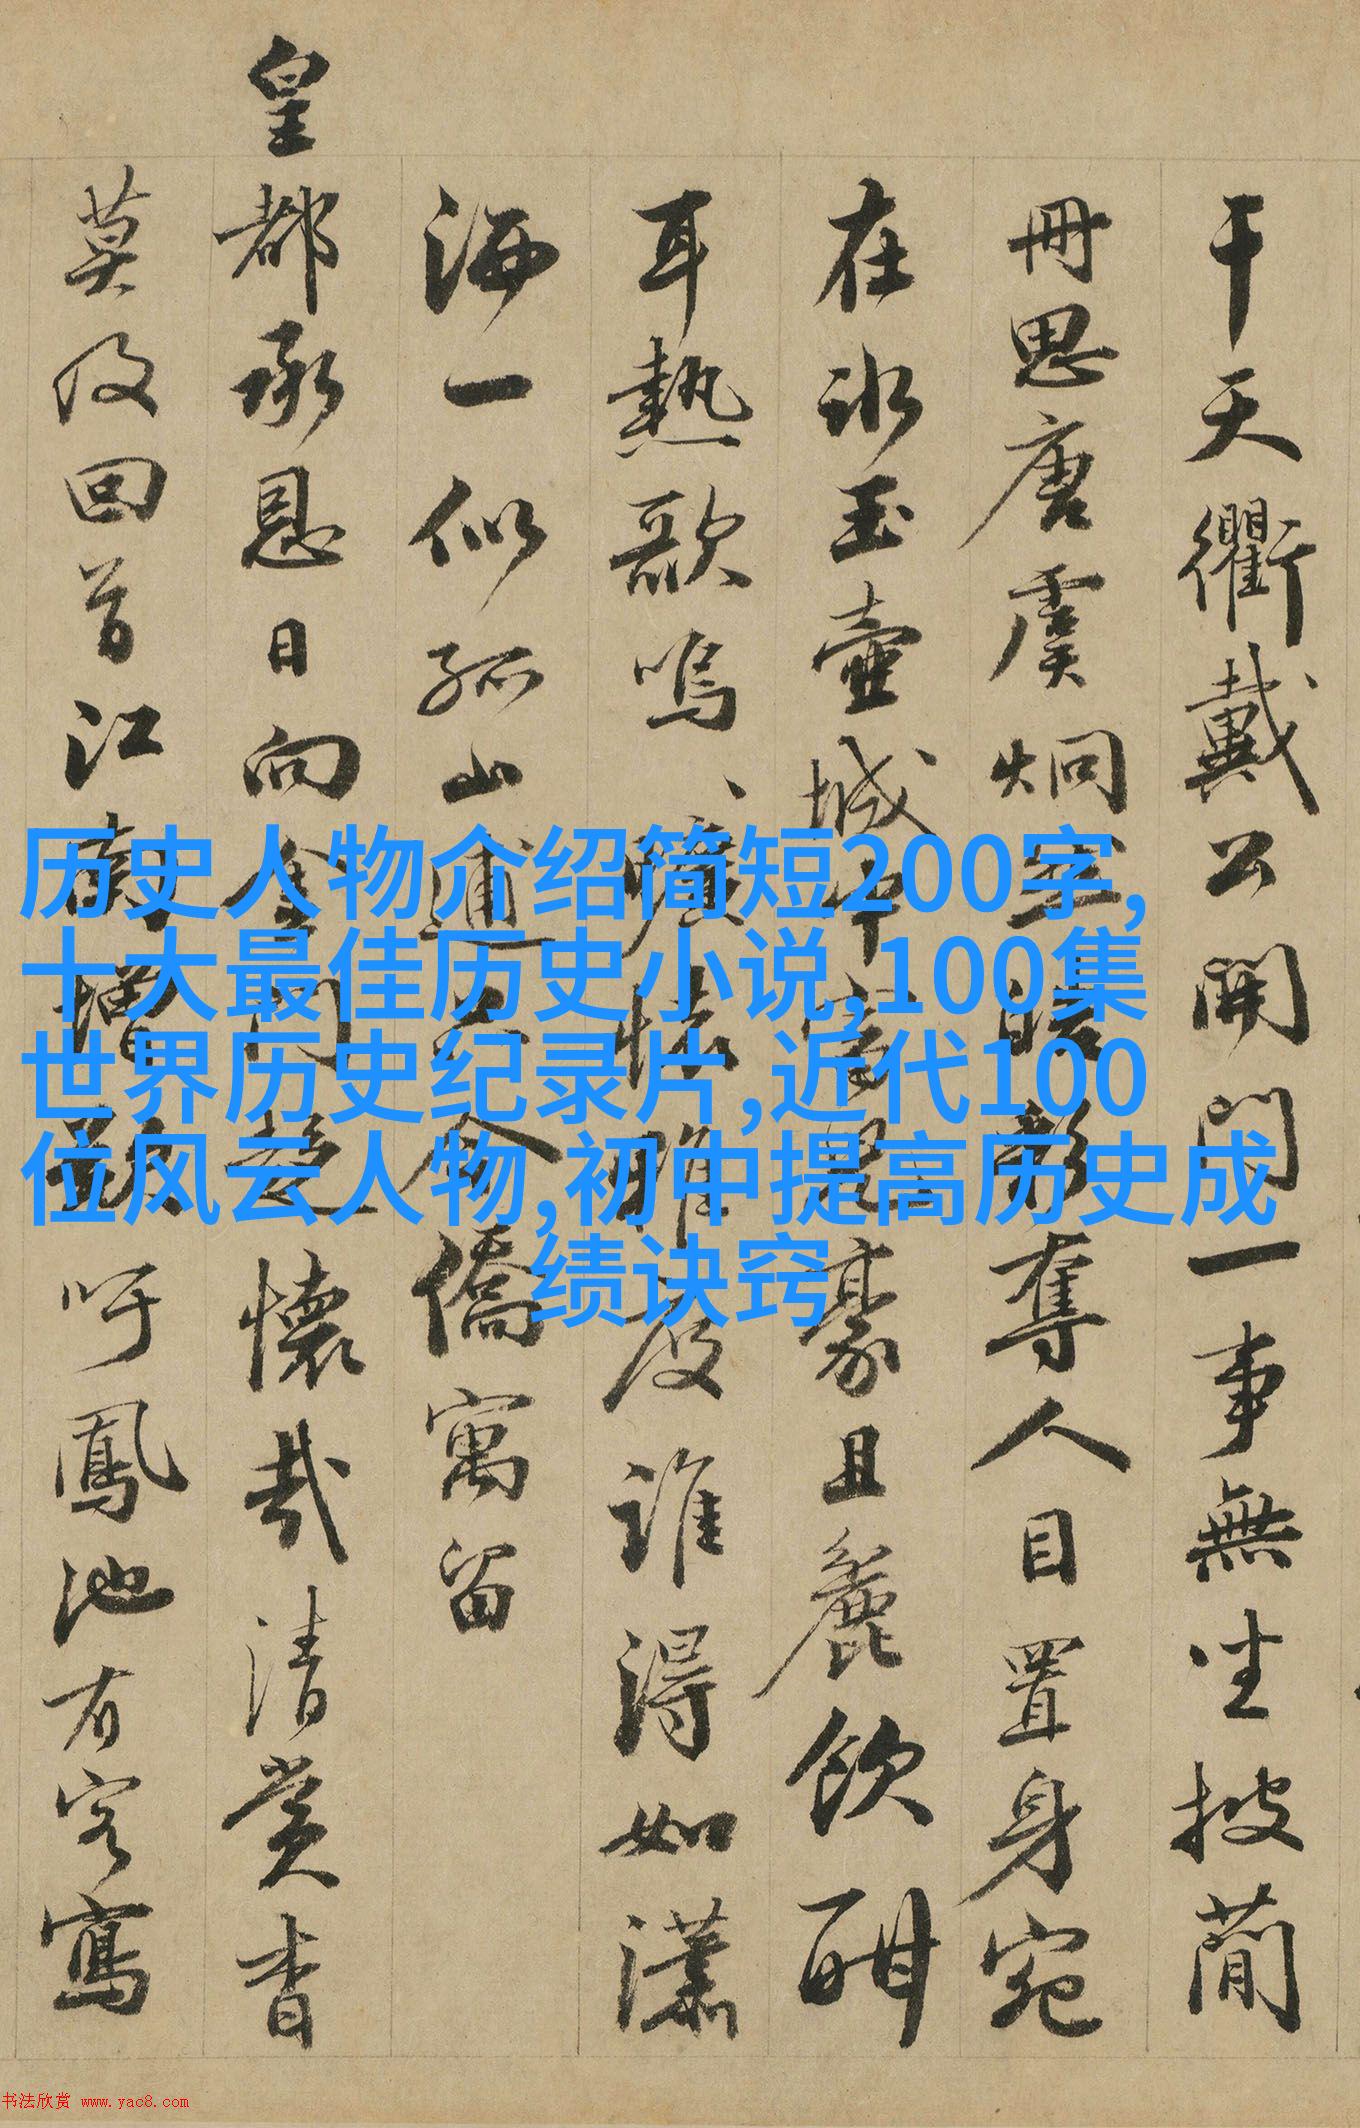 干天衢戴公開一事無坐披蕳
冊思唐虞炯彩奪人目置身宛
在冰玉壺城中豪且麗飲酣
耳熱歌嗚、曠懷度誰得如瀟
海一似孤山逋今僑寓留
皇都承恩日向金門趨懷哉清賞杳
莫及回首江南增吁鳳池有客寫
历史人物介绍简短200字,
十大最佳历史小说,100集
世界历史纪录片,近代100
位风云人物,初中提高历史成
绩诀窍
书法欣赏 www.yac8.com